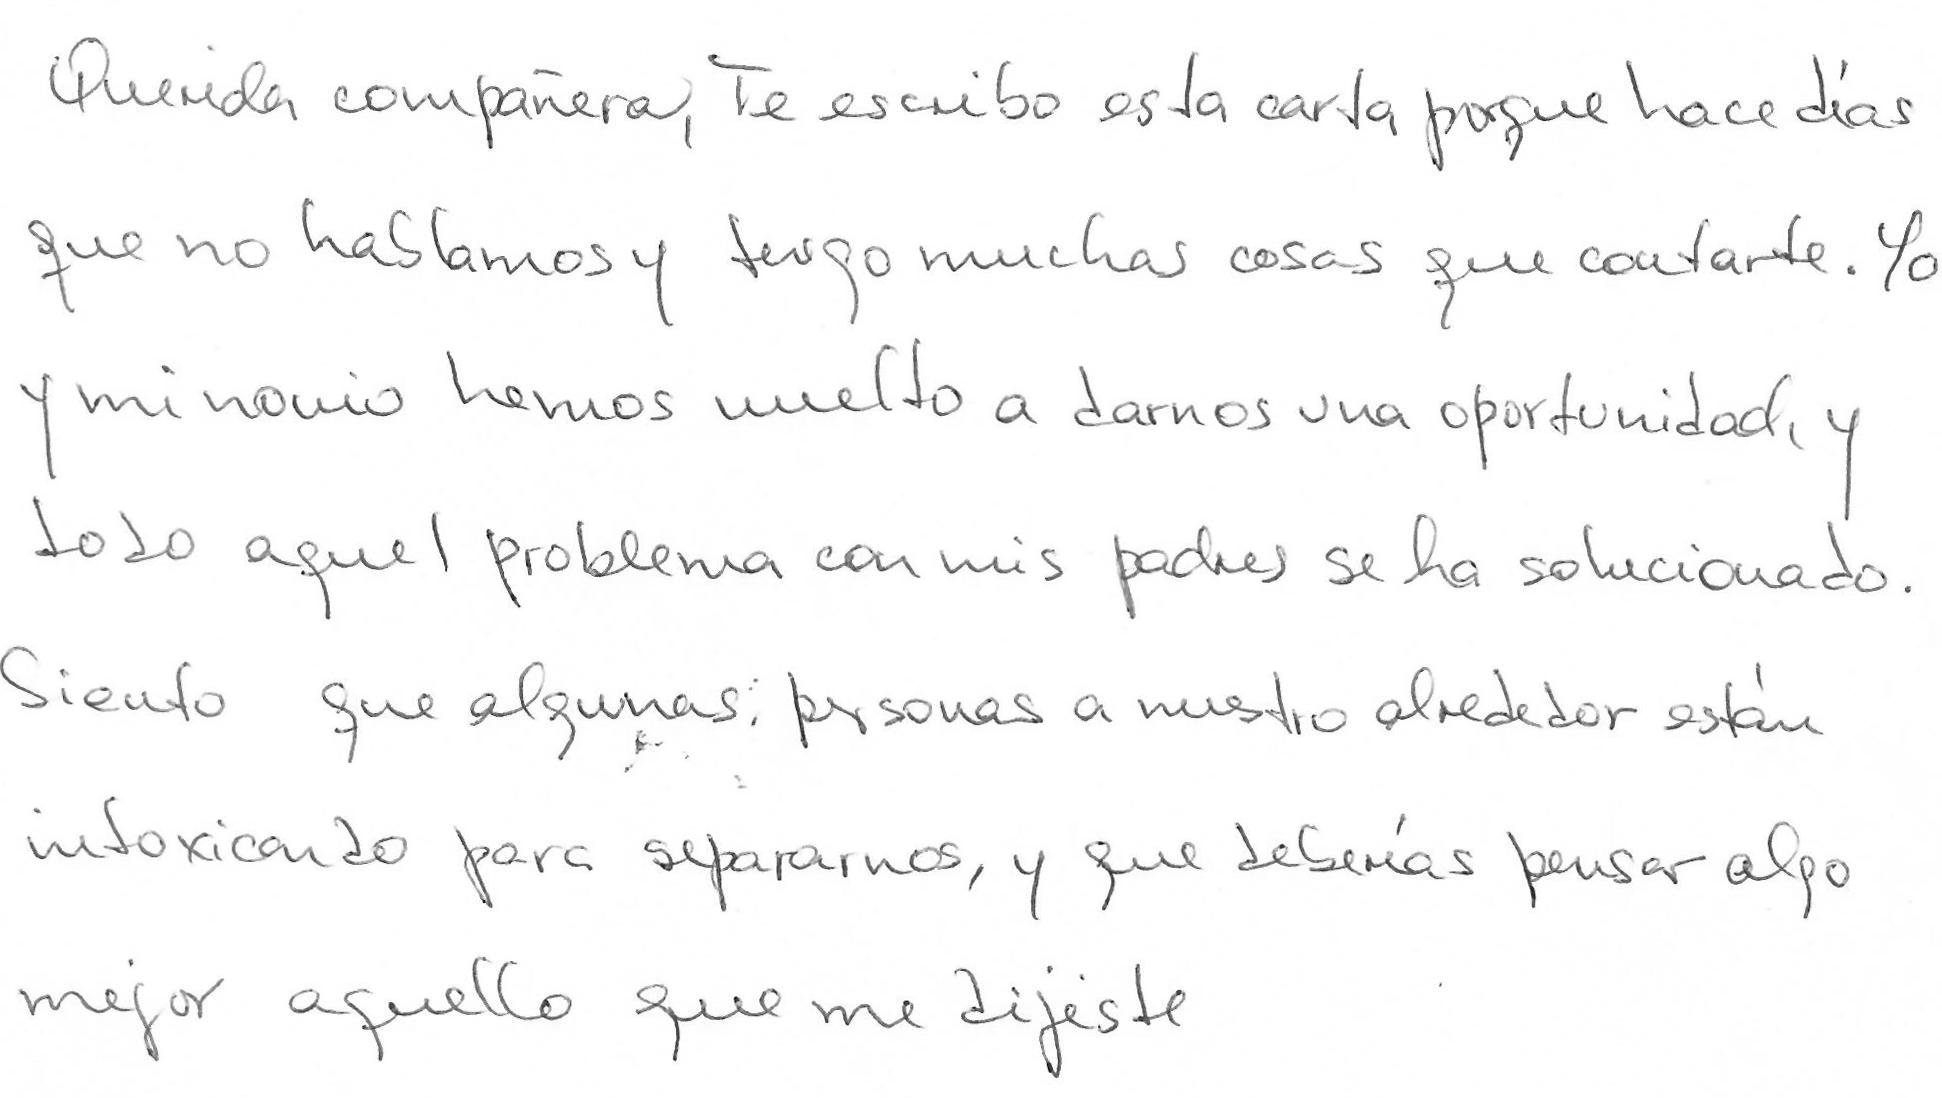 Querida compañera, Te escribo esta carta porque hace días
que no hablamos y tengo muchas cosas que contarte. Yo
y mi novio hemos vuelto a darnos una oportunidad, y
todo aquel problema con mis padres se ha solucionado.
Siento que algunas personas a nuestro alrededor están
intoxicando para separarnos, y que deberías pensar algo
mejor aquello que me dijiste